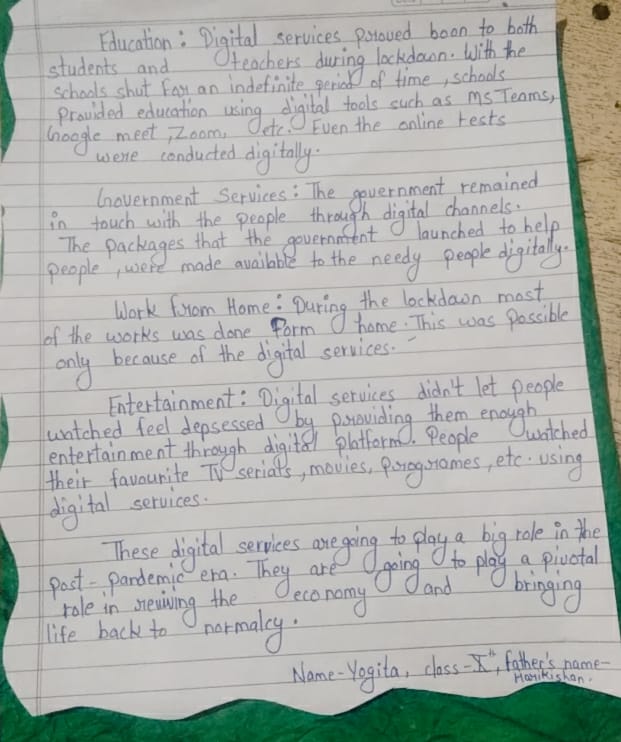 Education: Digital services proved boon to both
students and teachers during lockdown. With the
schools shut for an indefinite period of time, schools
provided education using digital tools such as MS Teams,
Google meet, Zoom, etc. Even the online tests
were conducted digitally.
Government Services: The government remained
in touch with the people through digital channels.
The packages that the government launched to help
people, were made available to the needy people digitally.
Work from Home: During the lockdown most
of the works was done Form home. This was possible
only because of the digital services.
Entertainment: Digital services didn't let people
watched feel depsessed by providing them enough
entertainment through digital platform. People watched
their favourite TV serials, movies, programes, etc. using
digital services.
These digital services are going to play a big role in the
post-pandemic era. They are going to play a pivotal
role in reviving the economy and bringing
life back to normalcy.
Name-Yogita, class-Xth, father's name-
Harikishan.